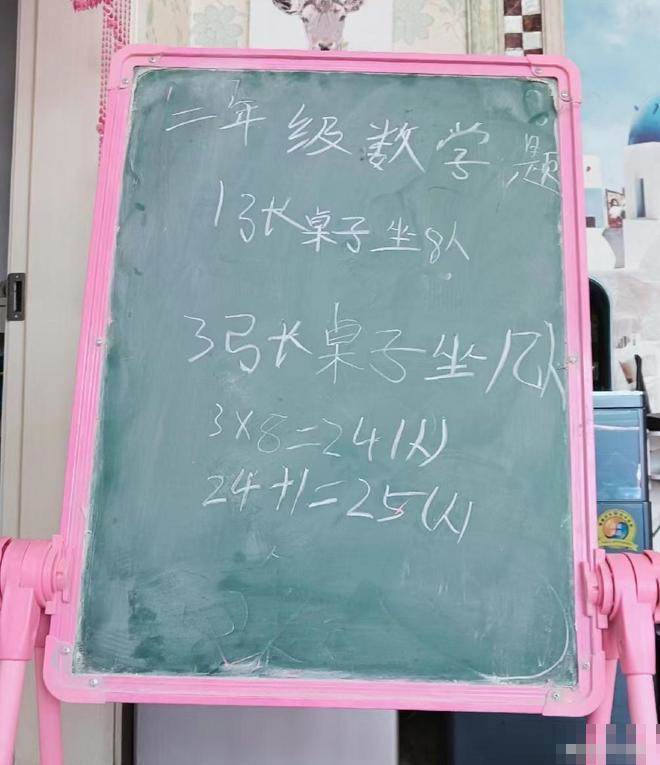 二年级数学题
1张桌子坐8人
3张桌子坐几人
3×8=24(人)
24+1=25(人)